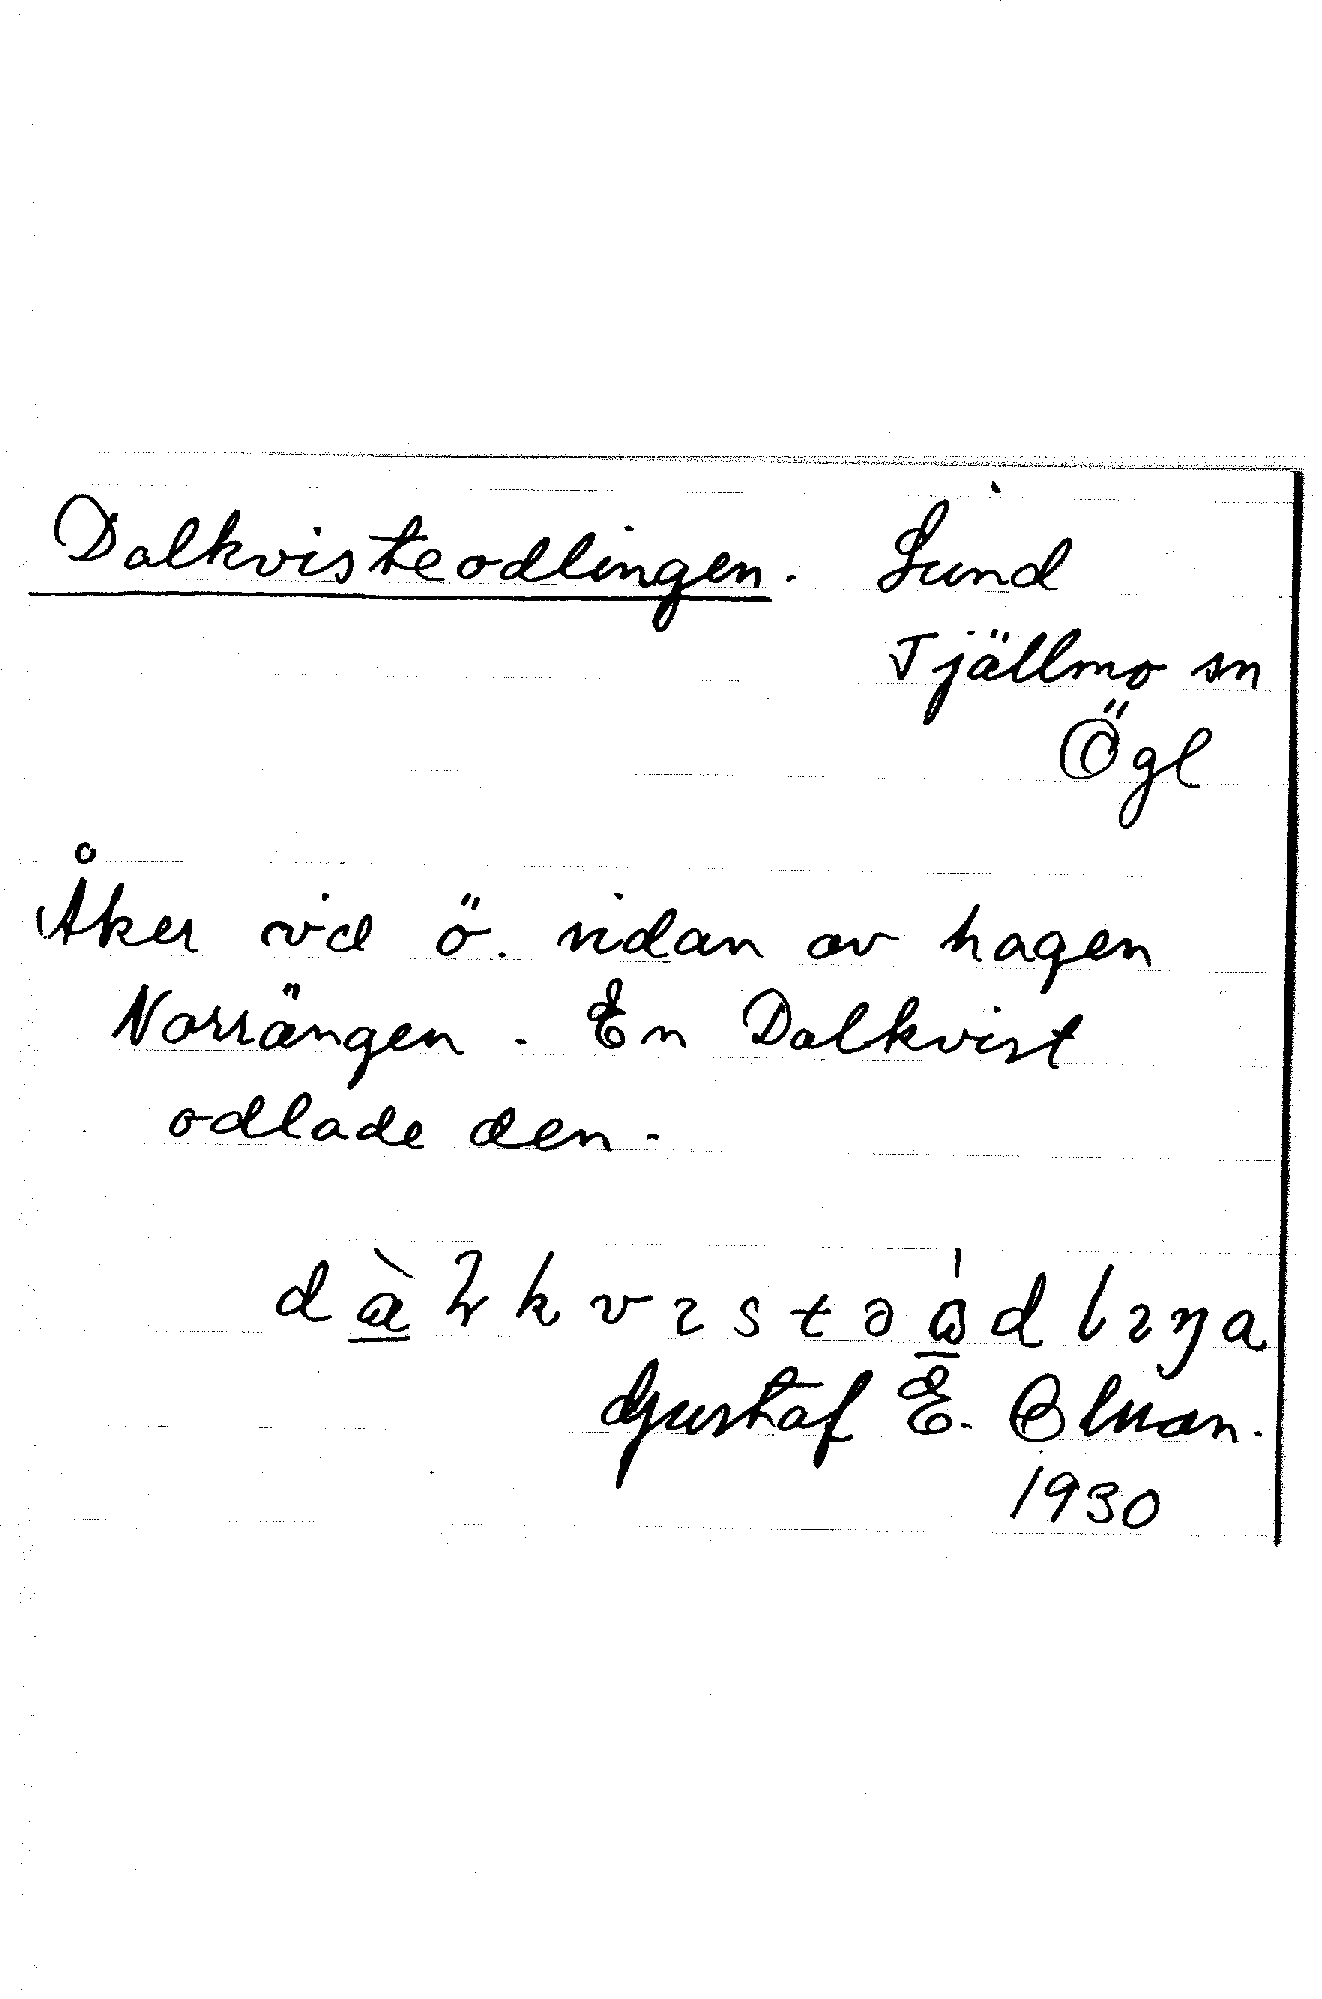 Dalkvisteodlingen. Lund
Tjällmo sn
Ögl
Åker vid ö. sidan av hagen
Norrängen. En Dalkvist
odlade den.
Gustaf E. Olsson.
1930